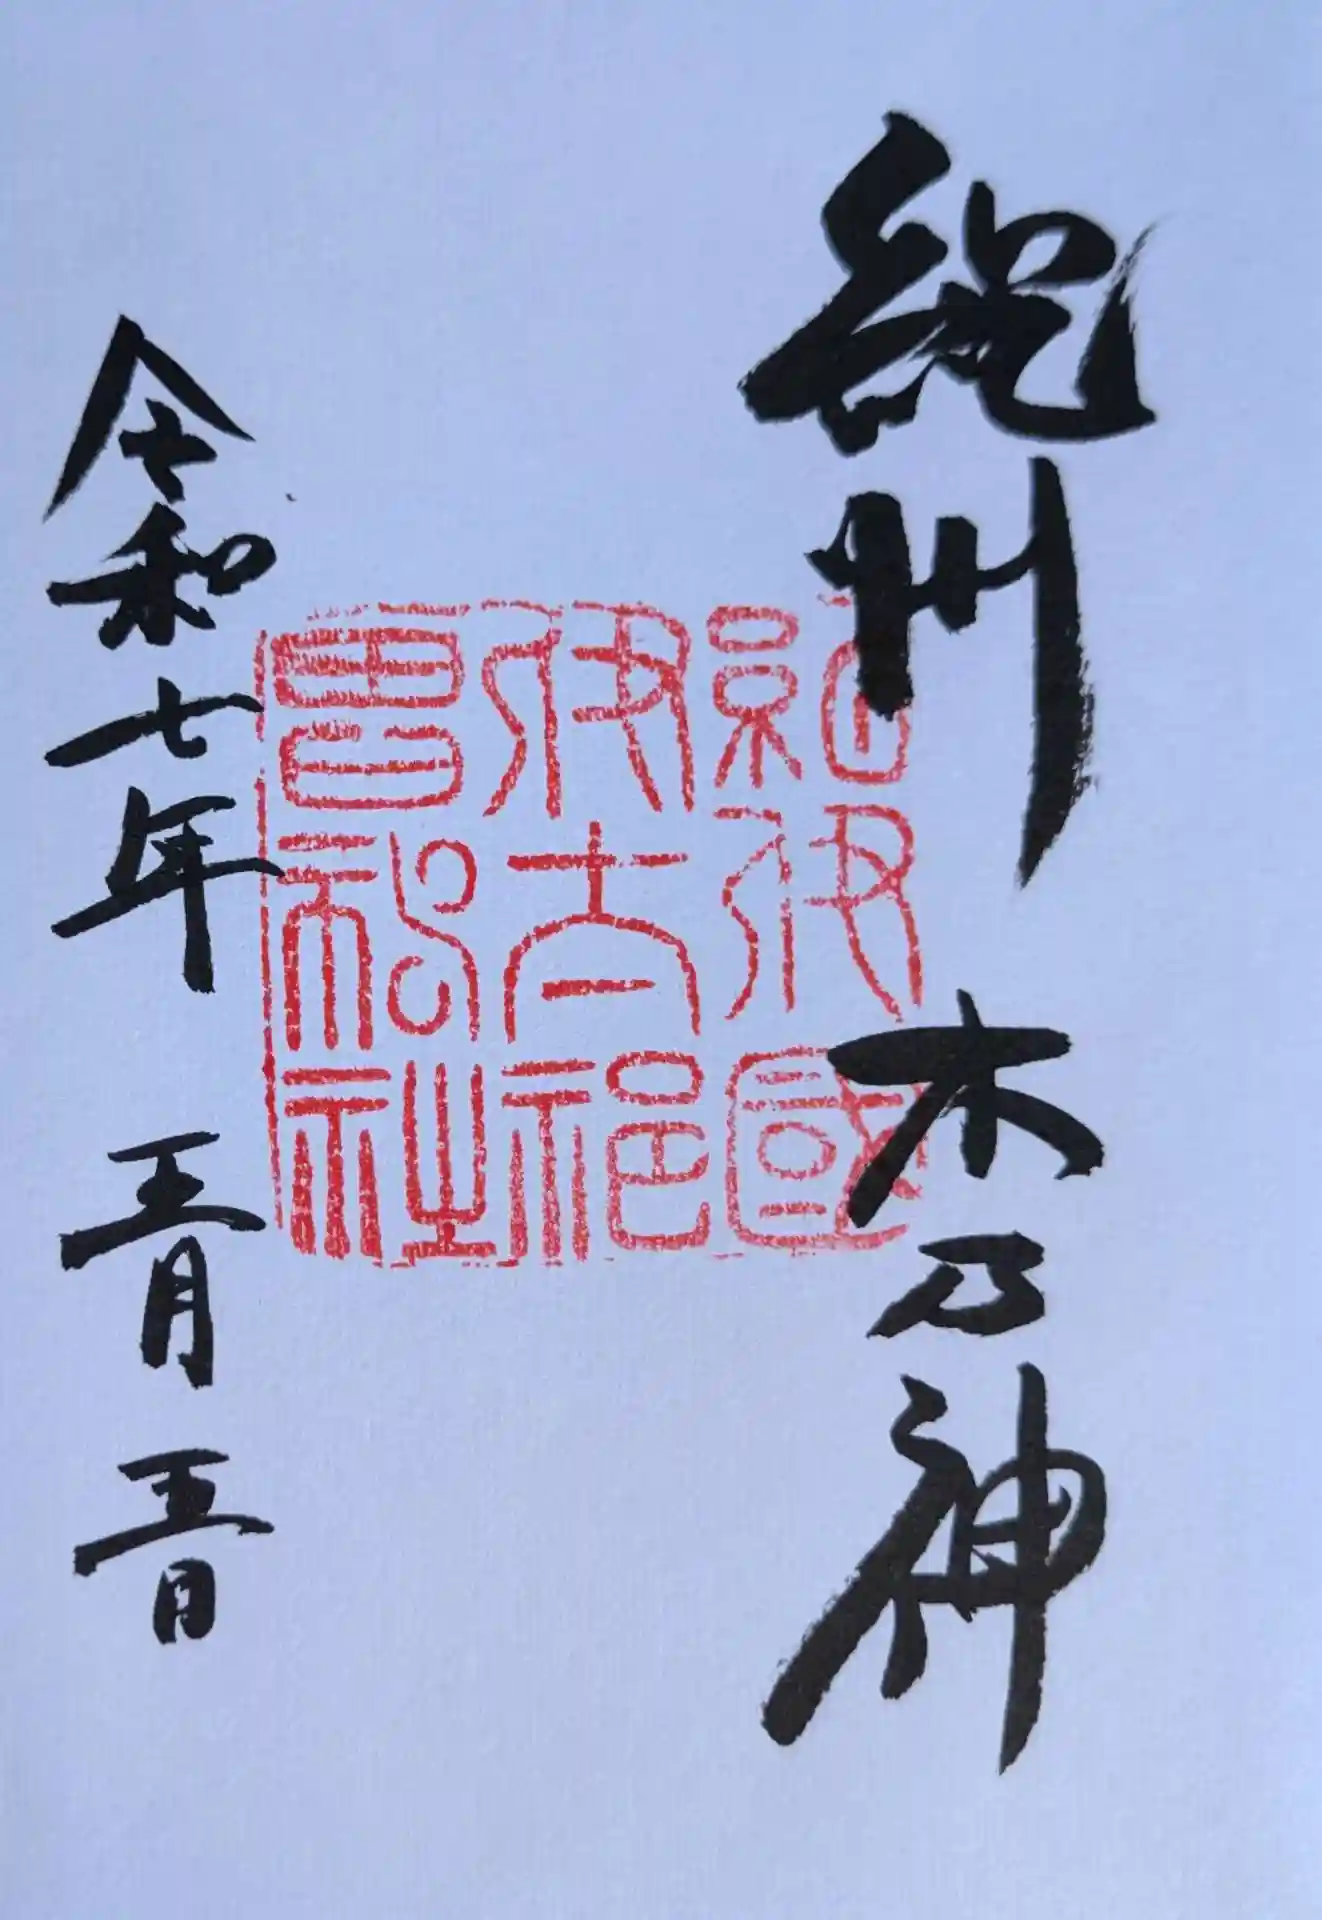 紀州 木乃神
紀伊國
伊太祁
曾神社
令和七年 五月 五日